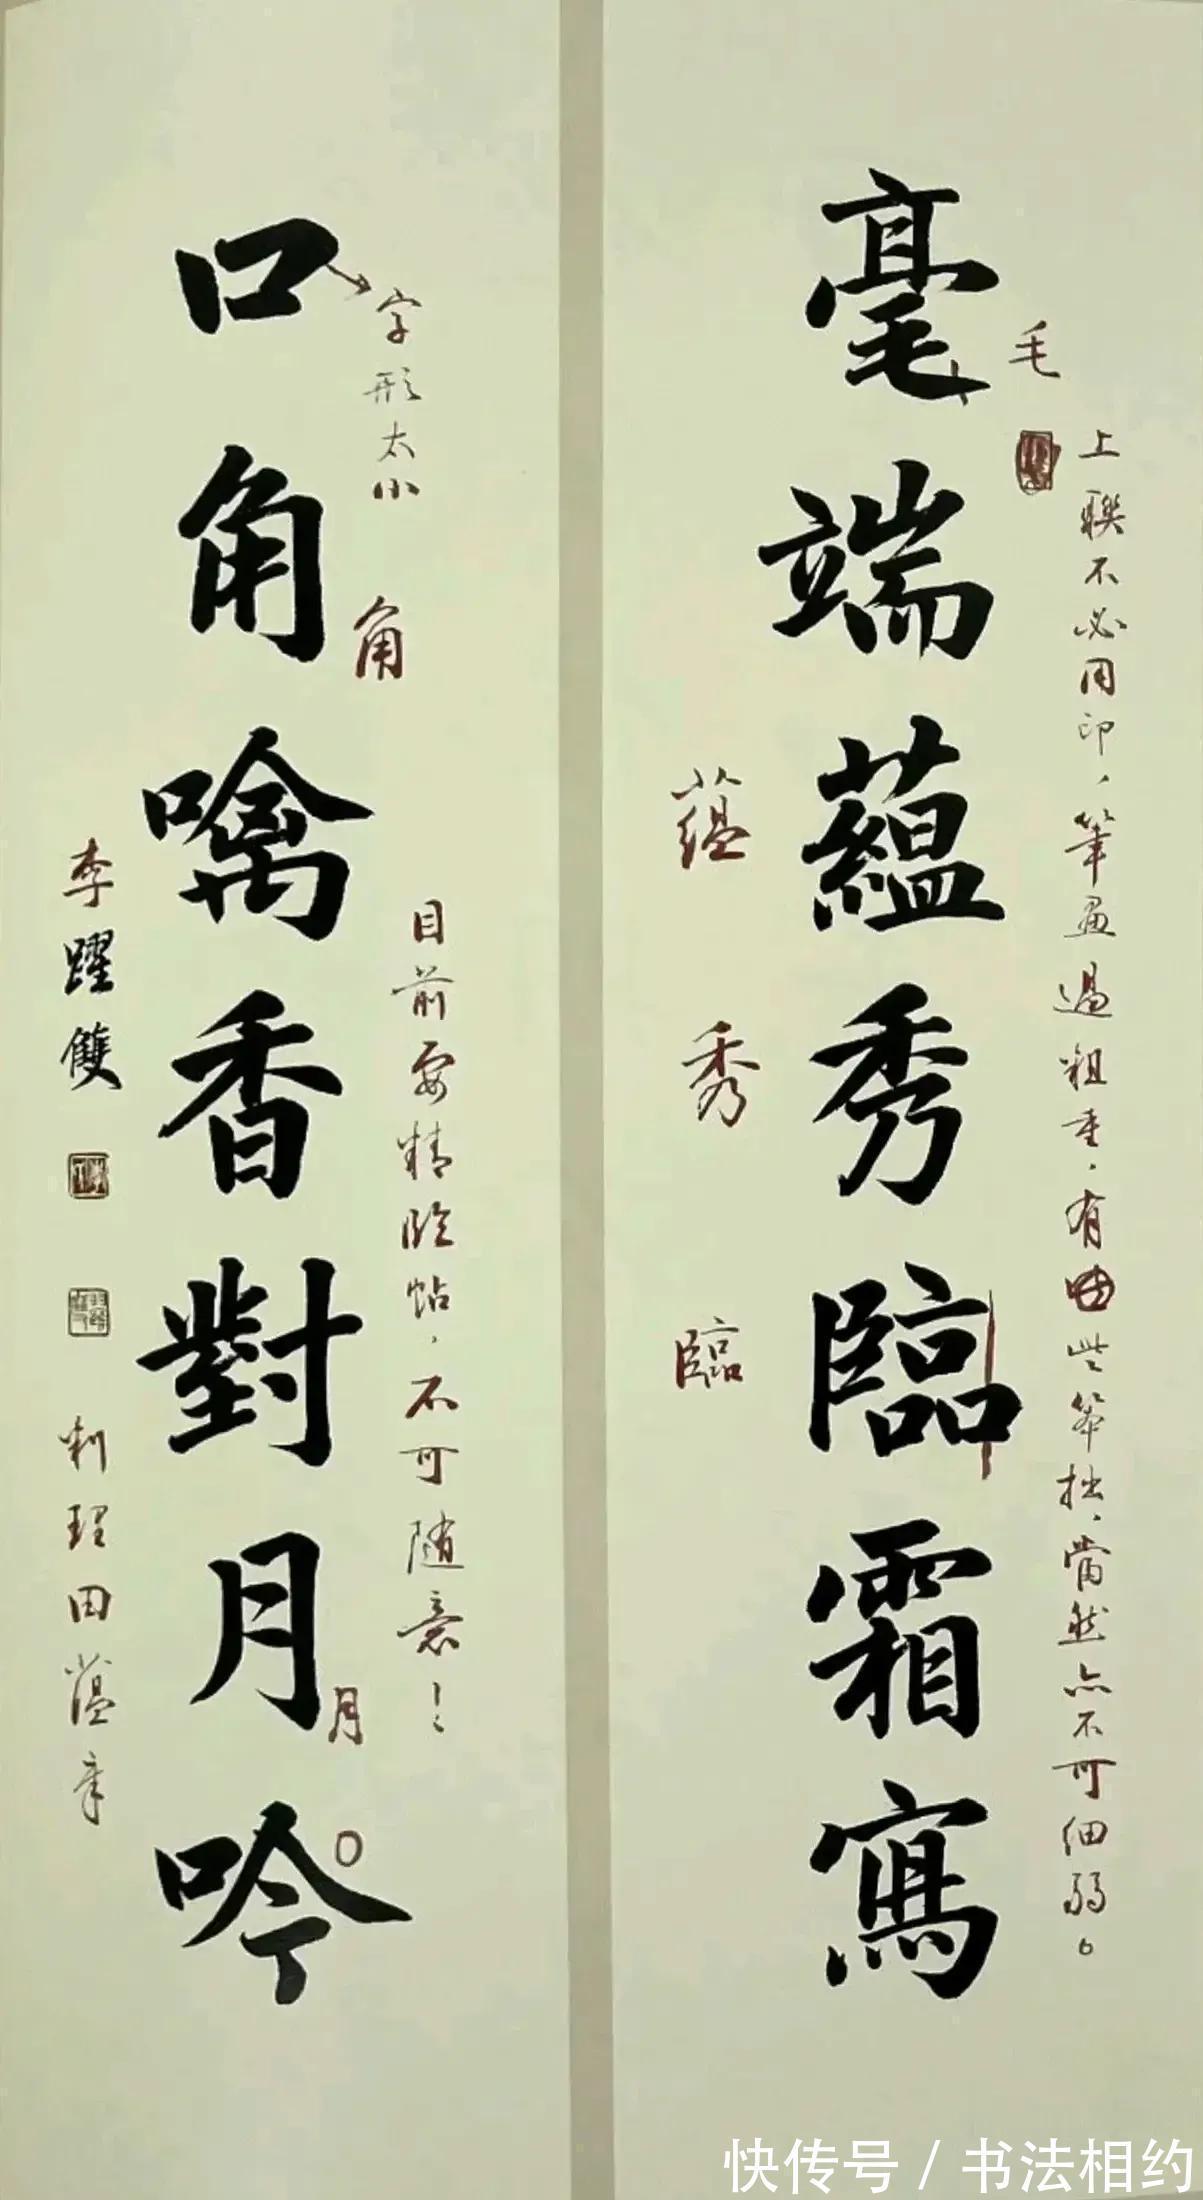 毫端蘊秀臨霜寫
毛
上聯不必用印、筆畫過粗重，有些筆拙，當然亦不可細弱。
蘊
秀
臨
口角噙香對月吟
字形太小
角
目前要精临帖，不可随意！
月
李躍雙
田蘊章
快传号/书法相约